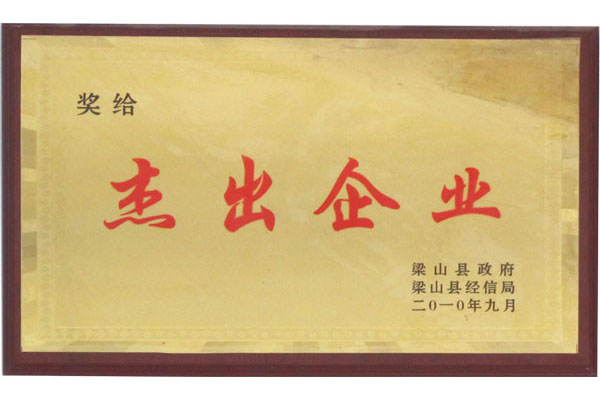 奖给
杰出企业
梁山县政府
梁山县经信局
二〇一〇年九月